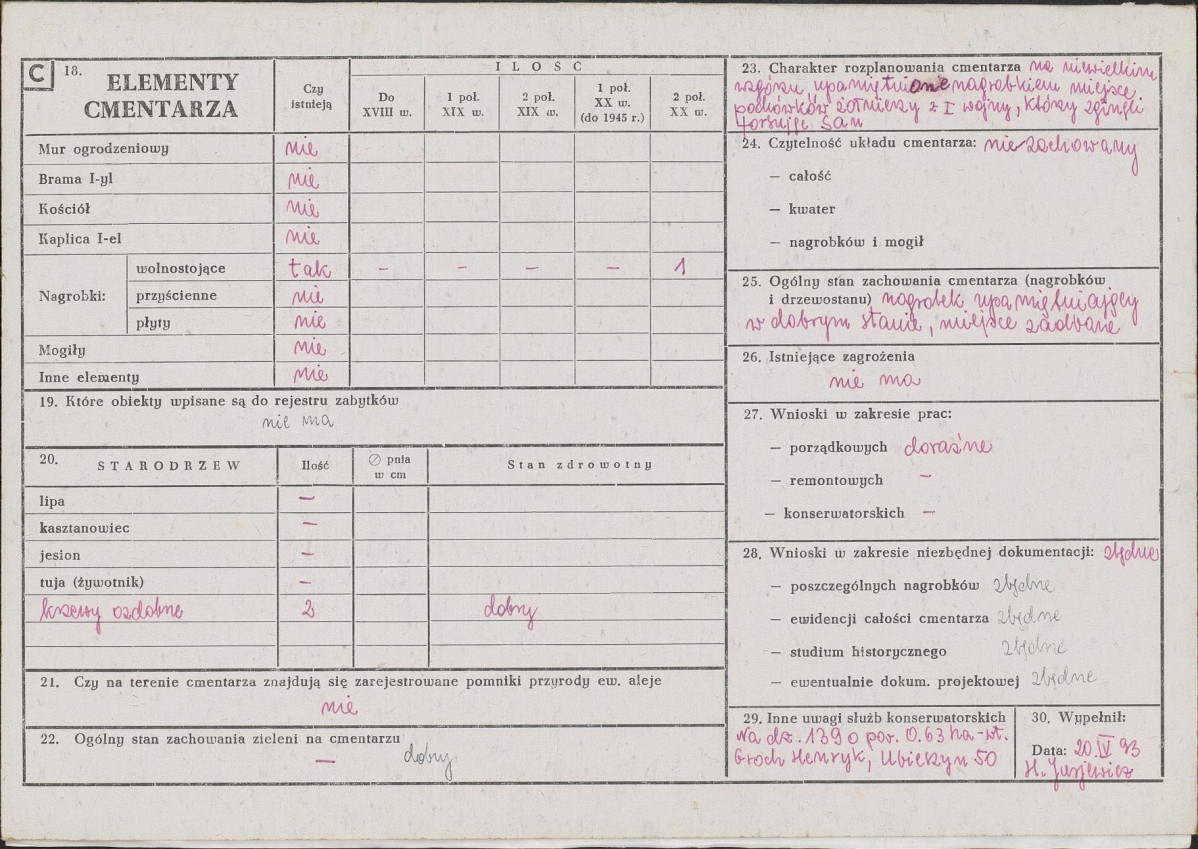 C 18. ELEMENTY CMENTARZA
Czy istnieją
ILOŚĆ
Do XVIII w.
1 poł. XIX w.
2 poł. XIX w.
1 poł. XX w. (do 1945 r.)
2 poł. XX w.
Mur ogrodzeniowy nie
Brama I-yl nie
Kościół nie
Kaplica I-el nie
Nagrobki: wolnostojące tak – – – – 1
przyścienne nie
płyty nie
Mogiły nie
Inne elementy nie
19. Które obiekty wpisane są do rejestru zabytków
nie ma
20. STARODRZEW Ilość ∅ pnia w cm Stan zdrowotny
lipa –
kasztanowiec –
jesion –
tuja (żywotnik) –
krzewy ozdobne 2 dobry
21. Czy na terenie cmentarza znajdują się zarejestrowane pomniki przyrody ew. aleje
nie
22. Ogólny stan zachowania zieleni na cmentarzu
– dobry
23. Charakter rozplanowania cmentarza na niewielkim
wzgórzu, upamiętnione nagrobkiem miejsce
pochówków żołnierzy z I wojny, którzy zginęli
forsując San
24. Czytelność układu cmentarza: nie zachowany
– całość
– kwater
– nagrobków i mogił
25. Ogólny stan zachowania cmentarza (nagrobków
i drzewostanu) nagrobek upamiętniający
w dobrym stanie, miejsce zadbane
26. Istniejące zagrożenia
nie ma
27. Wnioski w zakresie prac:
– porządkowych doraźne
– remontowych –
– konserwatorskich –
28. Wnioski w zakresie niezbędnej dokumentacji: zbędne
– poszczególnych nagrobków zbędne
– ewidencji całości cmentarza zbędne
– studium historycznego zbędne
– ewentualnie dokum. projektowej zbędne
29. Inne uwagi służb konserwatorskich
Na dz. 1390 pow. 0.63 ha - wł.
Groch Henryk, Ubieszyn 50
30. Wypełnił:
Data: 20.IV 93